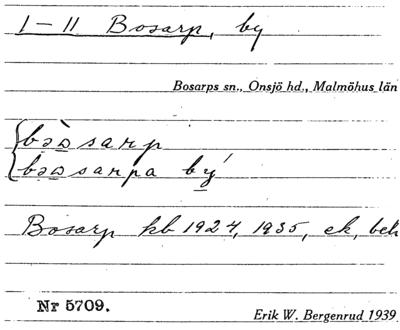 I–II Bosarp, by
Bosarps sn., Onsjö hd., Malmöhus län
bəòsarp
bəosarpa bý
Bosarp kb 1924, 1935, ek, beh
Nr 5709.
Erik W. Bergenrud 1939